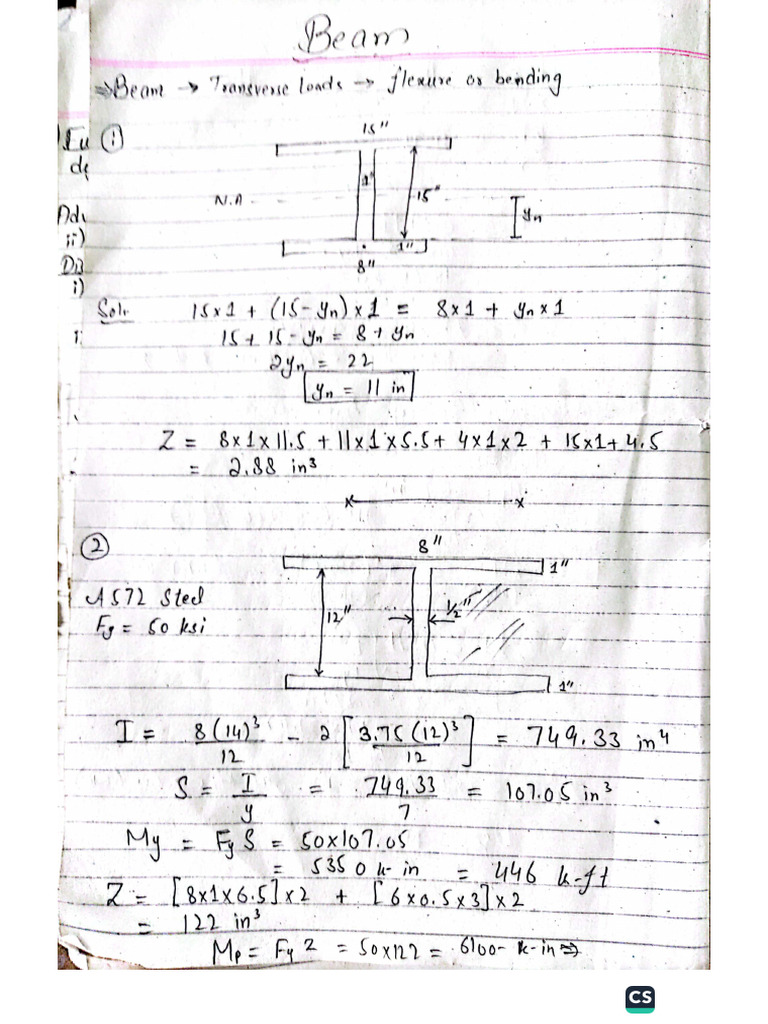 Beam
⇒ Beam → Transverse loads → flexure or bending
①
15"
1"
N.A
15"
yn
1"
8"
Soln
15x1 + (15-yn)x1 = 8x1 + yn x1
15+15-yn = 8+yn
2yn = 22
yn = 11 in
Z = 8x1x11.5+11x1x5.5+4x1x2 + 15x1+4.5
= 2.88 in³
x x
②
8"
1"
A572 Steel
12"
1/2"
Fy = 50 ksi
1"
I = 8(14)³/12 - 2[3.75(12)³/12] = 749.33 in⁴
S = I/y = 749.33/7 = 107.05 in³
My = Fy S = 50x107.05
= 5350 k-in = 446 k-ft
Z = [8x1x6.5]x2 + [6x0.5x3]x2
= 122 in³
Mp = Fy Z = 50x122 = 6100- k-in ⇒
i)
ii)
i)
CS